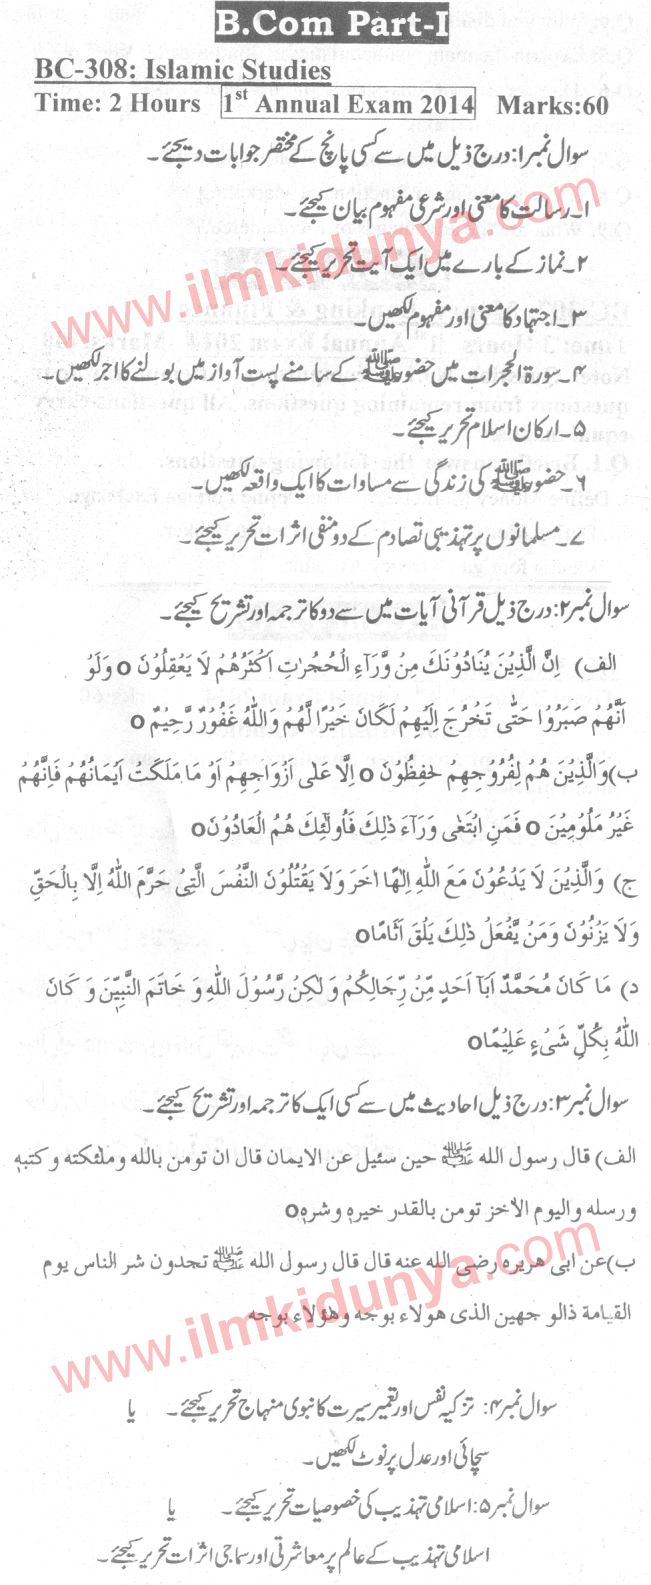 B.Com Part-I
BC-308: Islamic Studies
Time: 2 Hours 1st Annual Exam 2014 Marks:60
سوال نمبر۱: درج ذیل میں سے کسی پانچ کے مختصر جوابات دیجئے۔
۱۔ رسالت کا معنی اور شرعی مفہوم بیان کیجئے۔
۲۔ نماز کے بارے میں ایک آیت تحریر کیجئے۔
۳۔ اجتہاد کا معنی اور مفہوم لکھیں۔
۴۔ سورۃ الحجرات میں حضور ﷺ کے سامنے پست آواز میں بولنے کا اجر لکھیں۔
۵۔ ارکان اسلام تحریر کیجئے۔
۶۔ حضور ﷺ کی زندگی سے مساوات کا ایک واقعہ لکھیں۔
۷۔ مسلمانوں پر تہذیبی تصادم کے دو منفی اثرات تحریر کیجئے۔
سوال نمبر۲: درج ذیل قرآنی آیات میں سے دو کا ترجمہ اور تشریح کیجئے۔
الف) اِنَّ الَّذِيْنَ يُنَادُوْنَكَ مِنْ وَّرَآءِ الْحُجُرٰتِ اَكْثَرُهُمْ لَا يَعْقِلُوْنَ o وَلَوْ
اَنَّهُمْ صَبَرُوْا حَتّٰى تَخْرُجَ اِلَيْهِمْ لَكَانَ خَيْرًا لَّهُمْ وَاللّٰهُ غَفُوْرٌ رَّحِيْمٌ o
ب) وَالَّذِيْنَ هُمْ لِفُرُوْجِهِمْ حٰفِظُوْنَ o اِلَّا عَلٰى اَزْوَاجِهِمْ اَوْ مَا مَلَكَتْ اَيْمَانُهُمْ فَاِنَّهُمْ
غَيْرُ مَلُوْمِيْنَ o فَمَنِ ابْتَغٰى وَرَآءَ ذٰلِكَ فَاُولٰٓئِكَ هُمُ الْعَادُوْنَ o
ج) وَالَّذِيْنَ لَا يَدْعُوْنَ مَعَ اللّٰهِ اِلٰهًا اٰخَرَ وَلَا يَقْتُلُوْنَ النَّفْسَ الَّتِىْ حَرَّمَ اللّٰهُ اِلَّا بِالْحَقِّ
وَلَا يَزْنُوْنَ وَمَنْ يَّفْعَلْ ذٰلِكَ يَلْقَ اَثَامًا o
د) مَا كَانَ مُحَمَّدٌ اَبَآ اَحَدٍ مِّنْ رِّجَالِكُمْ وَ لٰكِنْ رَّسُوْلَ اللّٰهِ وَ خَاتَمَ النَّبِيّٖنَ وَ كَانَ
اللّٰهُ بِكُلِّ شَىْءٍ عَلِيْمًا o
سوال نمبر۳: درج ذیل احادیث میں سے کسی ایک کا ترجمہ اور تشریح کیجئے۔
الف) قال رسول الله ﷺ حين سئيل عن الايمان قال ان تومن بالله وملئكته و كتبهٖ
ورسله واليوم الاخز تومن بالقدر خيرهٖ وشرهٖ o
ب) عن ابى هريره رضى الله عنه قال قال رسول الله ﷺ تجدون شر الناس يوم
القيامة ذالو جهين الذى هولاء بوجه وهؤلاء بوجه
سوال نمبر۴: تزکیہ نفس اور تعمیر سیرت کا نبوی منہاج تحریر کیجئے۔ یا
سچائی اور عدل پر نوٹ لکھیں۔
سوال نمبر۵: اسلامی تہذیب کی خصوصیات تحریر کیجئے۔ یا
اسلامی تہذیب کے عالم پر معاشرتی اور سماجی اثرات تحریر کیجئے۔
www.ilmkidunya.com
www.ilmkidunya.com